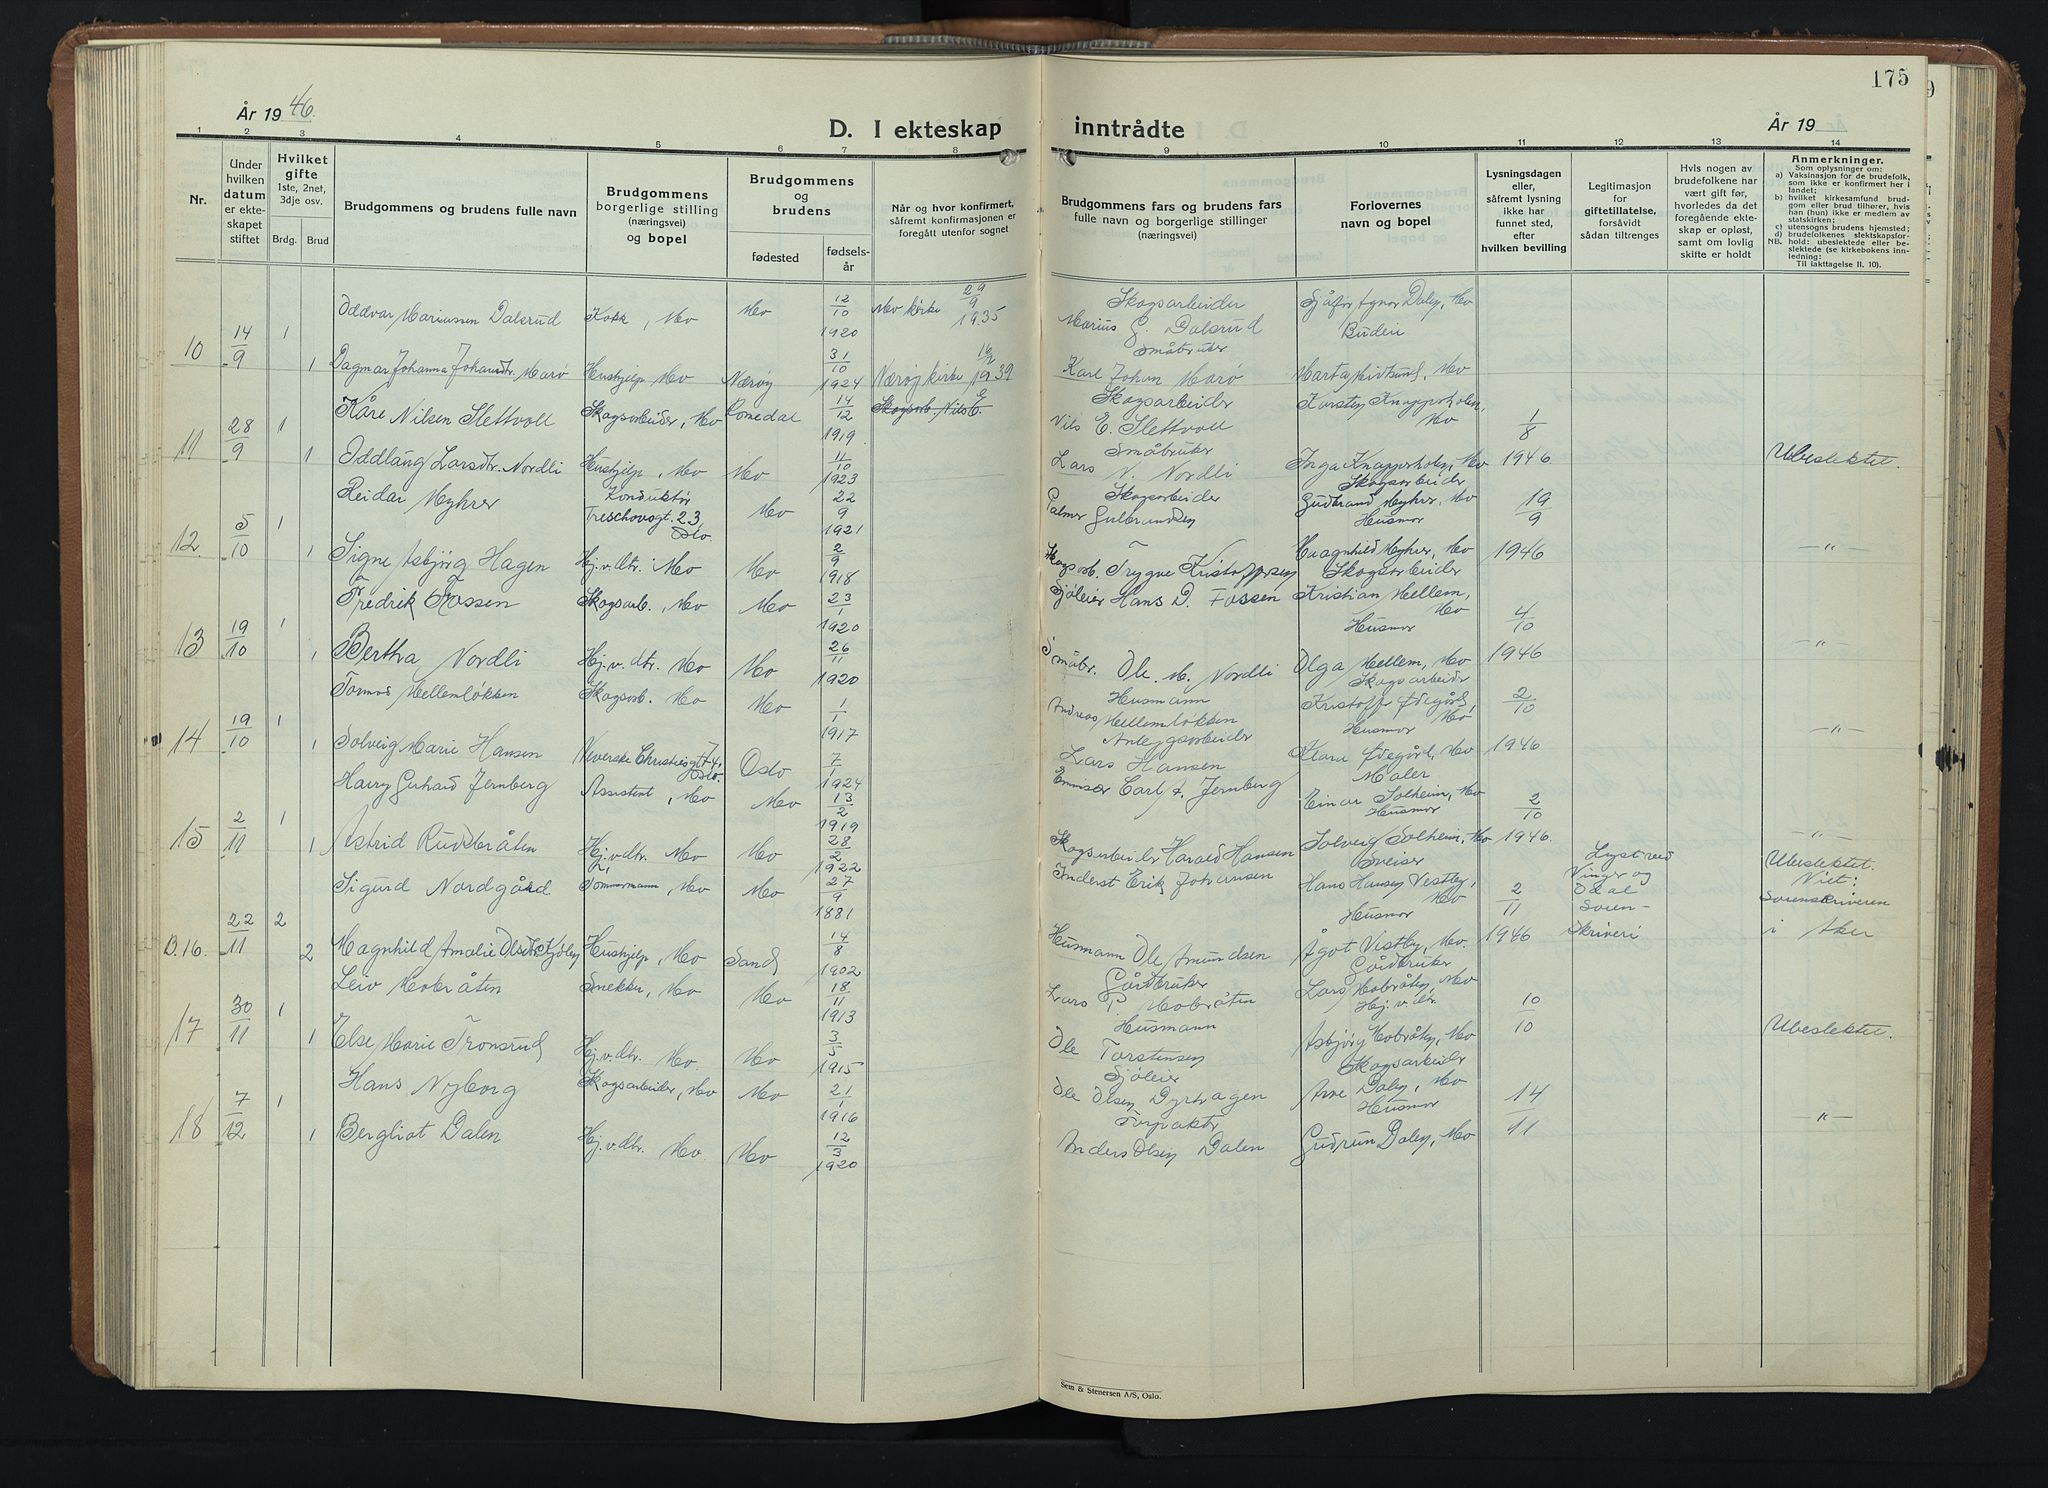 175
År 1946.
D. I ekteskap inntrådte
År 19
1 2 3 4 5 6 7 8 9 10 11 12 13 14
Nr.
Under hvilken datum er ekteskapet stiftet
Hvilket gifte 1ste, 2net, 3dje osv.
Brdg. Brud
Brudgommens og brudens fulle navn
Brudgommens borgerlige stilling (næringsvei) og bopel
Brudgommens og brudens
fødested
fødselsår
Når og hvor konfirmert, såfremt konfirmasjonen er foregått utenfor sognet
Brudgommens fars og brudens fars fulle navn og borgerlige stillinger (næringsvei)
Forlovernes navn og bopel
Lysningsdagen eller, såfremt lysning ikke har funnet sted, efter hvilken bevilling
Legitimasjon for giftetillatelse, forsåvidt sådan tiltrenges
Hvis nogen av brudefolkene har vært gift før, hvorledes da det foregående ekteskap er opløst, samt om lovlig skifte er holdt
Anmerkninger.
Som oplysninger om:
a) Vaksinasjon for de brudefolk, som ikke er konfirmert her i landet;
b) hvilket kirkesamfund brudgom eller brud tilhører, hvis han (hun) ikke er medlem av statskirken;
c) utensogns brudens hjemsted;
d) brudefolkenes slektskapsforhold: ubeslektede eller beslektede (se kirkebokens innledning:
NB.
Til iakttagelse II. 10).
10 14/9 1 Oddvar Mariussen Dalsrud Kokk, Mo Mo 12/10 1920 Mo kirke 29/9 1935 Skogsarbeider Marius G. Dalsrud Sjåfør Agnar Dalen, Mo Budeie
1 Dagmar Johanna Johansdtr. Marø Hushjelp Mo Nærøy 31/10 1924 Nærøy kirke 1939 Småbruker Karl Johan Marø Marta Midtsund, Mo
11 28/9 1 Kåre Nilsen Slettvoll Skogsarbeider, Mo Romedal 14/12 1919 Skogsarb. Nils E. Skogsarbeider Nils E. Slettvoll Karsten Knapperholen, Mo 1/8
1 Oddlaug Larsdtr. Nordli Hushjelp, Mo Mo 11/10 1923 Småbruker Lars N. Nordli Inga Knapperholen, Mo 1946. Ubeslektet.
12 5/10 1 Reidar Myhrer Konduktør Treschowsgt. 23 Oslo. Mo 22/9 1921 Skogsarbeider Palmer Gulbrandsen Skogsarbeider Gudbrand Myhrer, Mo Husmor 19/9
1 Signe Asbjørg Hagen Hj.v.dtr. Mo Mo 2/9 1918 Skogsarb. Trygve Kristoffersen Magnhild Myhrer, Mo 1946 —"—
13 19/10 1 Fredrik Fossen Skogsarb., Mo Mo 23/1 1920 Sjøleier Hans D. Fossen Skogsarbeider Kristian Mellem, Mo Husmor 4/10
1 Bertha Nordli Hj.v.dtr. Mo Mo 26/11 1920 Småbr. Ole M. Nordli Olga Mellem, Mo 1946 —"—
14 19/10 1 Tormod Mellemløkken Skogsarb. Mo Mo 1/1 1917 Husmann Andreas Mellemløkken Skogsarbeider Kristoffer Ødegård, Mo Husmor 2/10
1 Solveig Marie Hansen Veverske Christiesgt. 74, Oslo. Oslo 7/1 1924 Anleggsarbeider Lars Hansen Klara Ødegård, Mo 1946 —"—
15 2/11 1 Harry Gerhard Jernberg Assistent, Mo Mo 13/2 1919 Carl A. Jernberg Maler Einar Solheim, Mo Husmor 2/10
1 Astrid Rudsbråten Hj.v.dtr. Mo Mo 28/2 1922 Skogsarbeider Harald Hansen Solveig Solheim, Mo 1946. —"—
B.16. 22/11 2 Sigurd Nordgård Tømmermann, Mo Mo 27/9 1881 Inderst Erik Johansen Sveiser Hans Hansen Vestby, Mo Husmor 2/11 Lyst ved Vinger og Odal Sorenskriveri Ubeslektet. Viet: Sorenskriveren
2 Magnhild Amalie Olsdtr. Hushjelp, Mo Sand 14/8 1902 Husmann Ole Amundsen Ågot Vestby, Mo. 1946 i Aker
17 30/11 1 Leiv Mobråten Snekker, Mo Mo 18/11 1913 Gårdbruker Lars P. Mobråten Gårdbruker Lars Mobråten, Mo Hj.v.dtr. 10/10
1 Else Marie Tronsrud Hj.v.dtr. Mo Mo 3/5 1915 Husmann Ole Torstensen Asbjørg Mobråten, Mo Ubeslektet.
18 7/12 1 Hans Nyborg Skogsarbeider, Mo Mo 21/1 1916 Sjøleier Ole Olsen Dyrhagen Skogsarbeider Arne Dalen, Mo Husmor 14/11
1 Bergliot Dalen Hj.v.dtr. Mo. Mo 12/3 1920 Forpakter Anders Olsen Dalen Gudrun Dalen, Mo —"—
Sem & Stenersen A/S, Oslo.